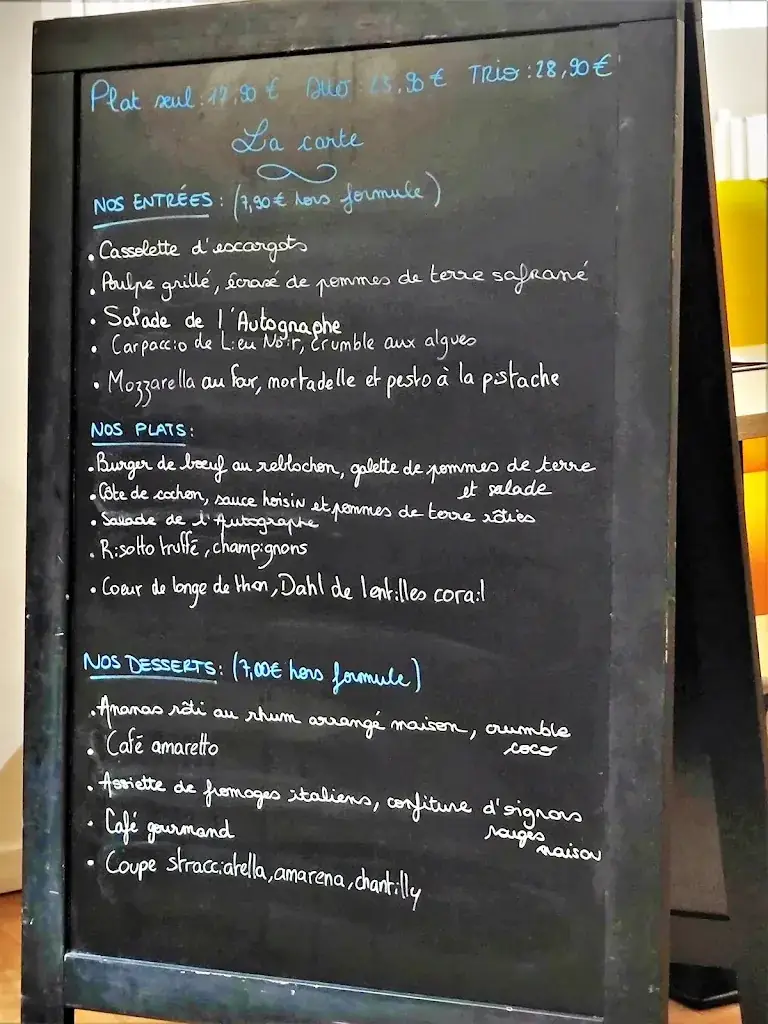 Plat seul : 17,90 € Duo : 23,90 € Trio : 28,90 €
La carte
NOS ENTRÉES : (7,90 € hors formule)
. Cassolette d'escargots
. Poulpe grillé, écrasé de pommes de terre safrané
. Salade de l'Autographe
. Carpaccio de Lieu Noir, crumble aux algues
. Mozzarella au four, mortadelle et pesto à la pistache
NOS PLATS :
. Burger de boeuf au reblochon, galette de pommes de terre
et salade
. Côte de cochon, sauce hoisin et pommes de terre rôties
. Salade de l'Autographe
. Risotto truffé, champignons
. Coeur de longe de thon, Dahl de lentilles corail
NOS DESSERTS : (7,00€ hors formule)
. Ananas rôti au rhum arrangé maison, crumble
coco
. Café amaretto
. Assiette de fromages italiens, confiture d'oignons
rouges
maison
. Café gourmand
. Coupe stracciatella, amarena, chantilly